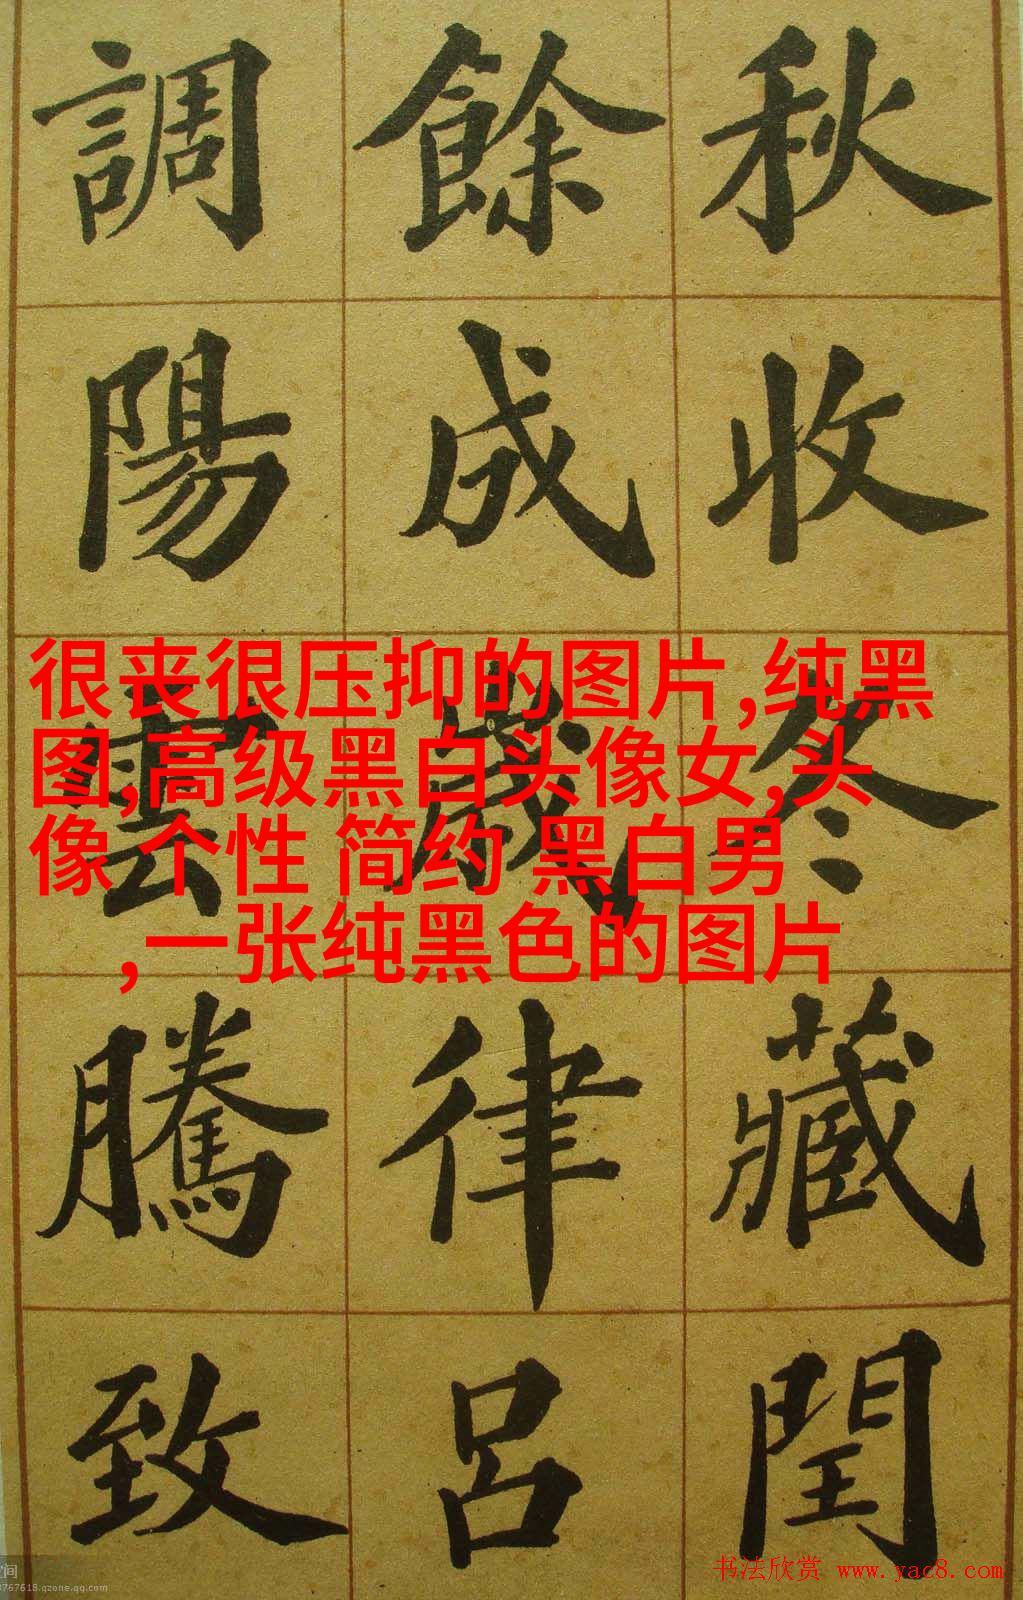 秋收冬藏閏
餘成歲律呂
調陽雲騰致
很丧很压抑的图片,纯黑
图,高级黑白头像女,头
像 个性 简约 黑白男
,一张纯黑色的图片
书法欣赏 www.yac8.com
767618.qzone.qq.com